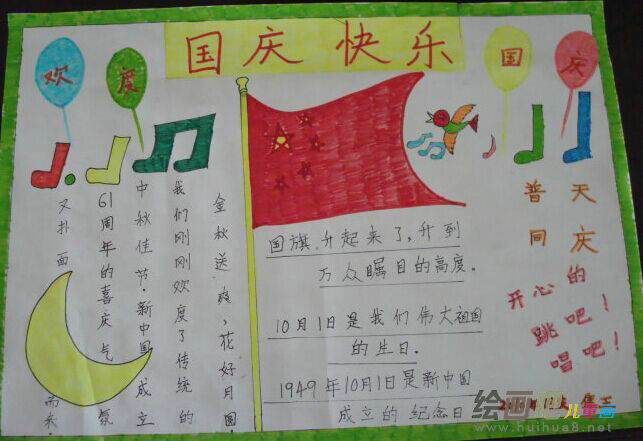 国庆快乐
欢度
国庆
金秋送爽,花好月圆,
我们刚刚欢度了传统的
中秋佳节·新中国成立
61周年的喜庆气氛
又扑面而来·
国旗,升起来了,升到
万众瞩目的高度。
10月1日是我们伟大祖国
的生日.
1949年10月1日是新中国
成立的纪念日
普天
同庆
开心的
跳吧!
唱吧!
绘画吧儿童画
www.huihua8.net